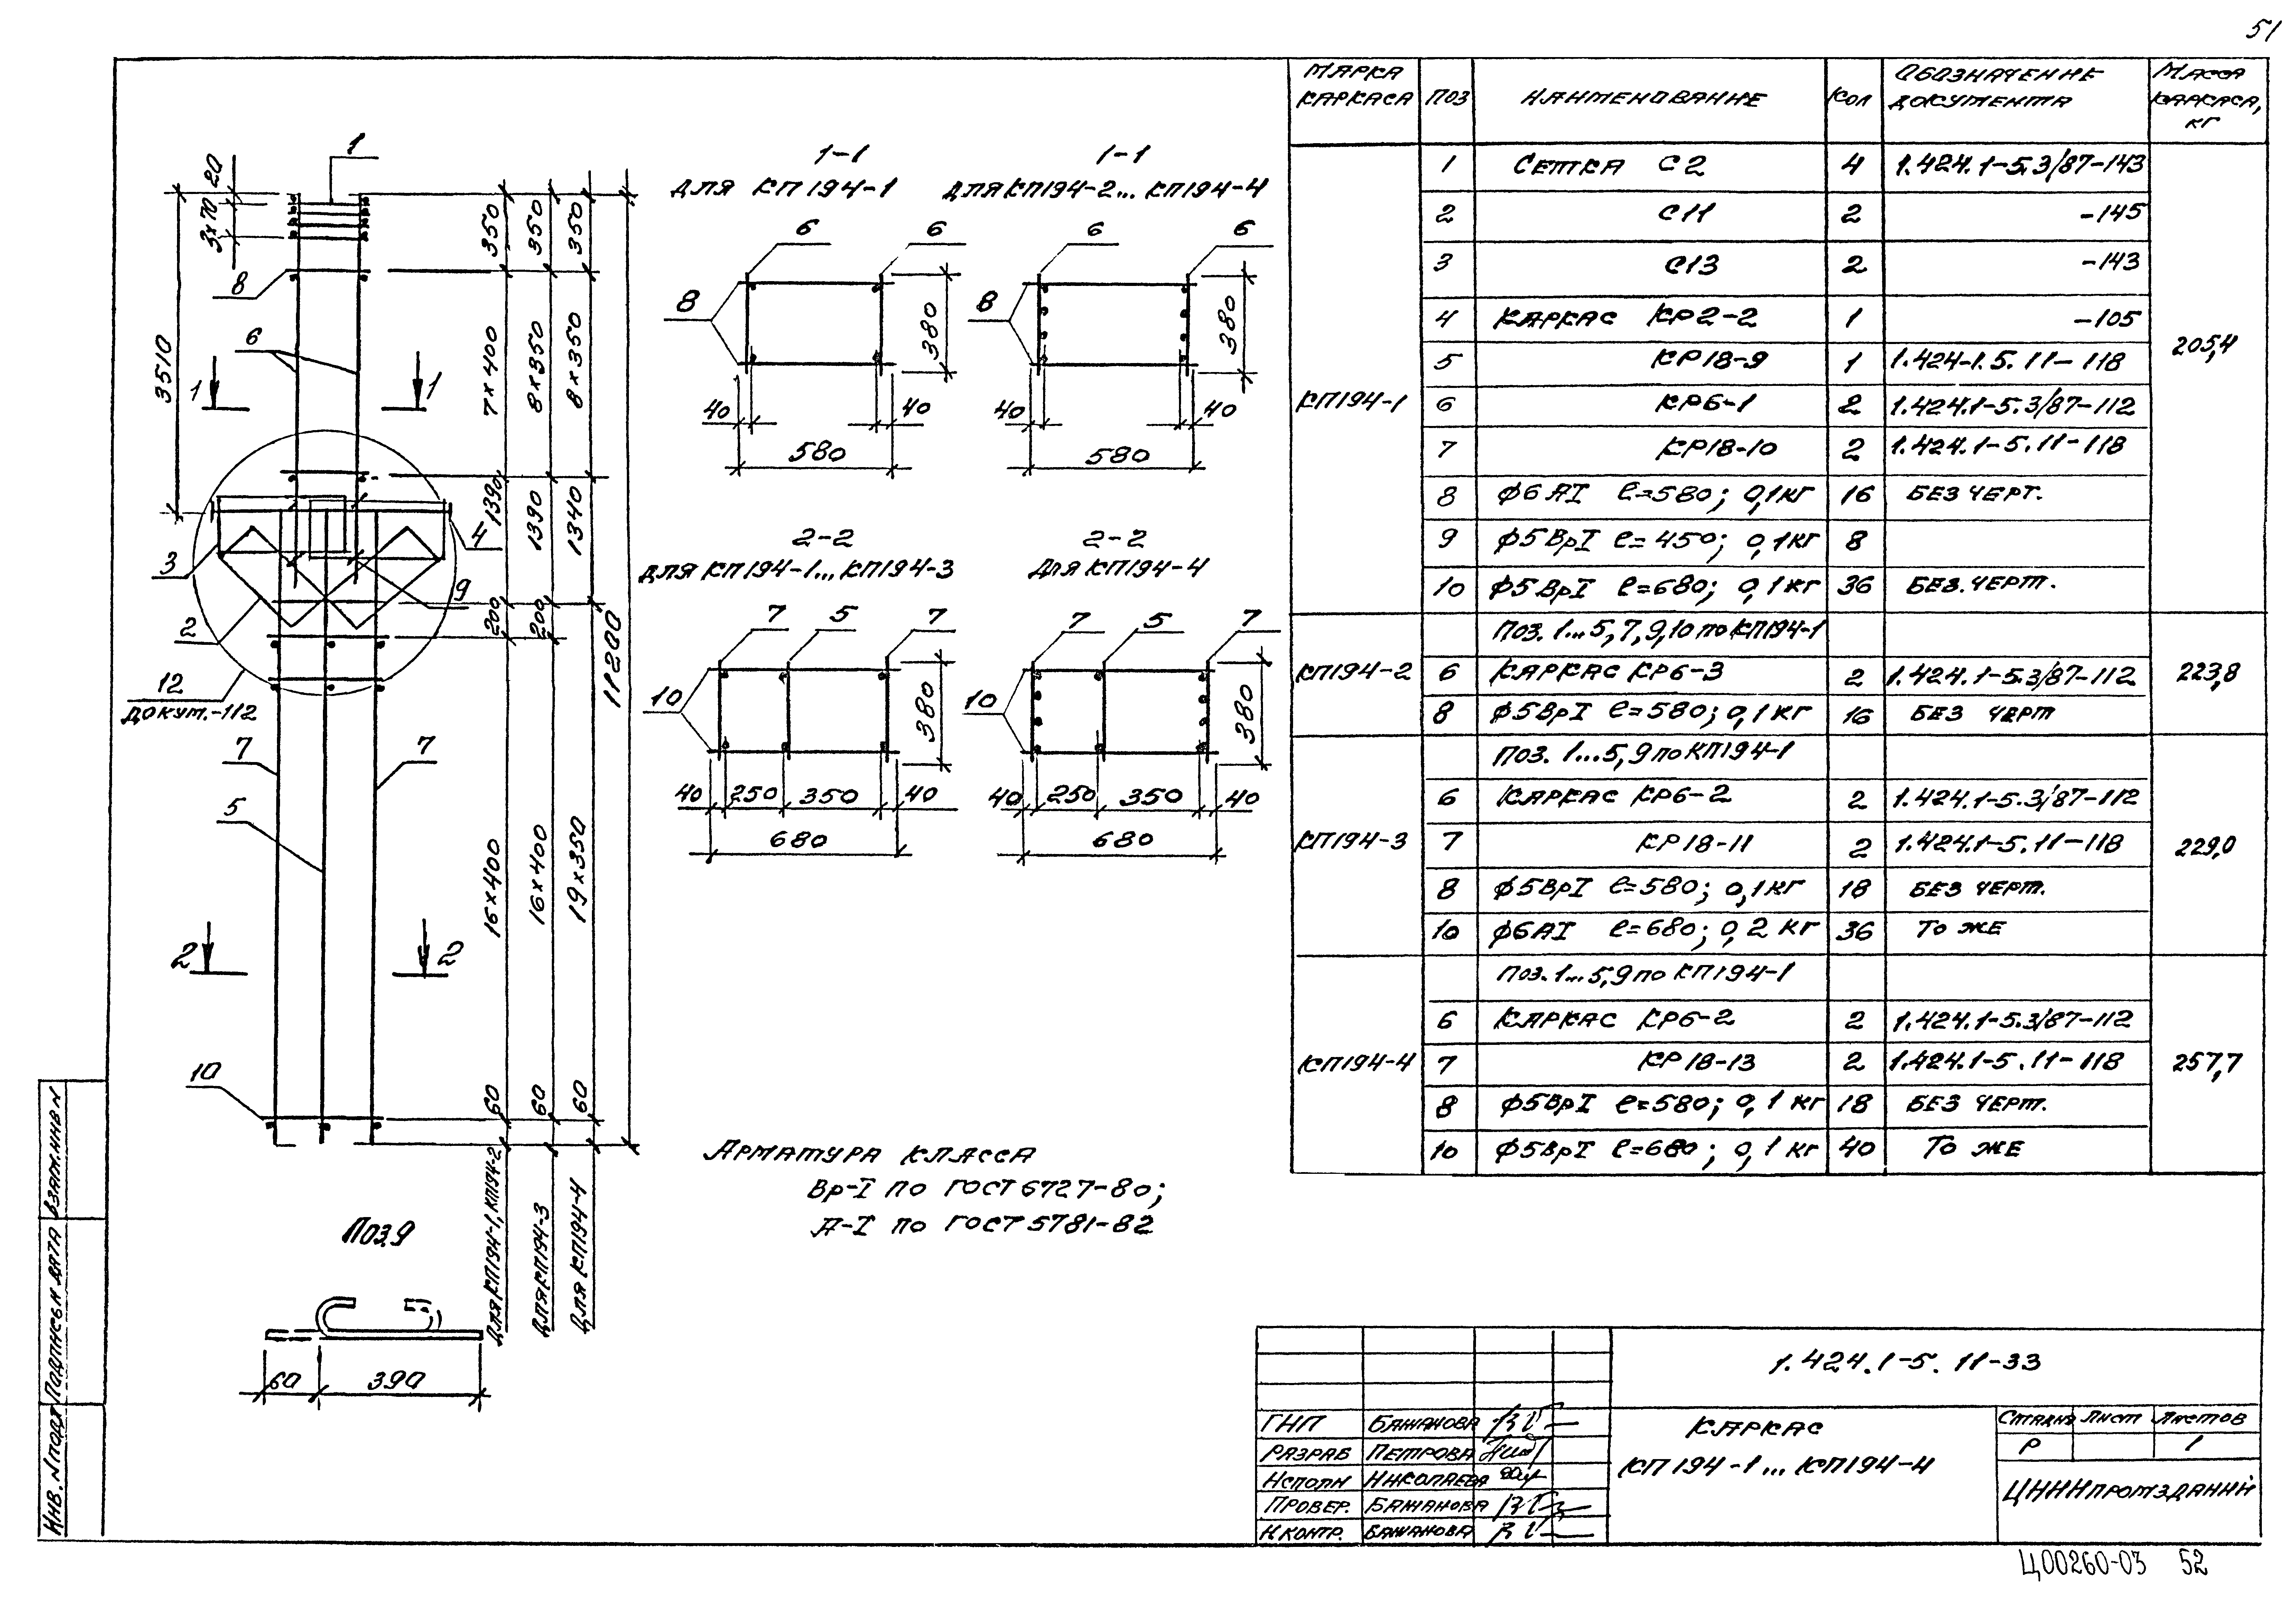 51
МАРКА КАРКАСА ПОЗ НАИМЕНОВАНИЕ КОЛ ОБОЗНАЧЕНИЕ ДОКУМЕНТА МАССА КАРКАСА, КГ
КП194-1 205,4
1 СЕТКА С2 4 1.424.1-5.3/87-143
2 С11 2 -145
3 С13 2 -143
4 КАРКАС КР2-2 1 -105
5 КР18-9 1 1.424-1.5.11-118
6 КР6-1 2 1.424.1-5.3/87-112
7 КР18-10 2 1.424.1-5.11-118
8 ϕ6АI ℓ=580; 0,1кг 16 БЕЗ ЧЕРТ.
9 ϕ5ВрI ℓ=450; 0,1кг 8
10 ϕ5ВрI ℓ=680; 0,1кг 36 БЕЗ.ЧЕРТ.
КП194-2 223,8
ПОЗ. 1...5,7,9,10 по КП194-1
6 КАРКАС КР6-3 2 1.424.1-5.3/87-112
8 ϕ5ВрI ℓ=580; 0,1кг 16 БЕЗ ЧЕРТ
КП194-3 229,0
ПОЗ. 1...5,9 по КП194-1
6 КАРКАС КР6-2 2 1.424.1-5.3/87-112
7 КР18-11 2 1.424.1-5.11-118
8 ϕ5ВрI ℓ=580; 0,1кг 18 БЕЗ ЧЕРТ.
10 ϕ6АI ℓ=680; 0,2 кг 36 ТО ЖЕ
КП194-4 257,7
ПОЗ. 1...5,9 по КП194-1
6 КАРКАС КР6-2 2 1.424.1-5.3/87-112
7 КР18-13 2 1.424.1-5.11-118
8 ϕ5ВрI ℓ=580; 0,1 кг 18 БЕЗ ЧЕРТ.
10 ϕ5ВрI ℓ=680; 0,1 кг 40 ТО ЖЕ
1
20
3×70
3510
8
6
1 1
3
4
9
2
12
ДОКУМ.-112
7 7
5
2 2
10
350 350 350
7×400 8×350 8×350
1390 1390 1340
200 200
16×400 16×400 19×350
60 60 60
11200
ДЛЯ КП194-1, КП194-2
ДЛЯ КП194-3
ДЛЯ КП194-4
1-1
ДЛЯ КП194-1
6 6
8
380
40 40
580
1-1
ДЛЯ КП194-2... КП194-4
6 6
8
380
40 40
580
2-2
ДЛЯ КП194-1... КП194-3
7 5 7
10
380
40 250 350 40
680
2-2
ДЛЯ КП194-4
7 5 7
10
380
40 250 350 40
680
АРМАТУРА КЛАССА
Вр-I ПО ГОСТ 6727-80;
А-I ПО ГОСТ 5781-82
ПОЗ.9
60 390
ИНВ.№ПОДЛ ПОДПИСЬ И ДАТА ВЗАМ.ИНВ№
1.424.1-5.11-33
ГИП БАЖАНОВА
РАЗРАБ ПЕТРОВА
ИСПОЛН НИКОЛАЕВА
ПРОВЕР. БАЖАНОВА
Н.КОНТР. БАЖАНОВА
КАРКАС
КП194-1... КП194-4
СТАДИЯ ЛИСТ ЛИСТОВ
Р 1
ЦНИИПРОМЗДАНИЙ
Ц00260-03 52